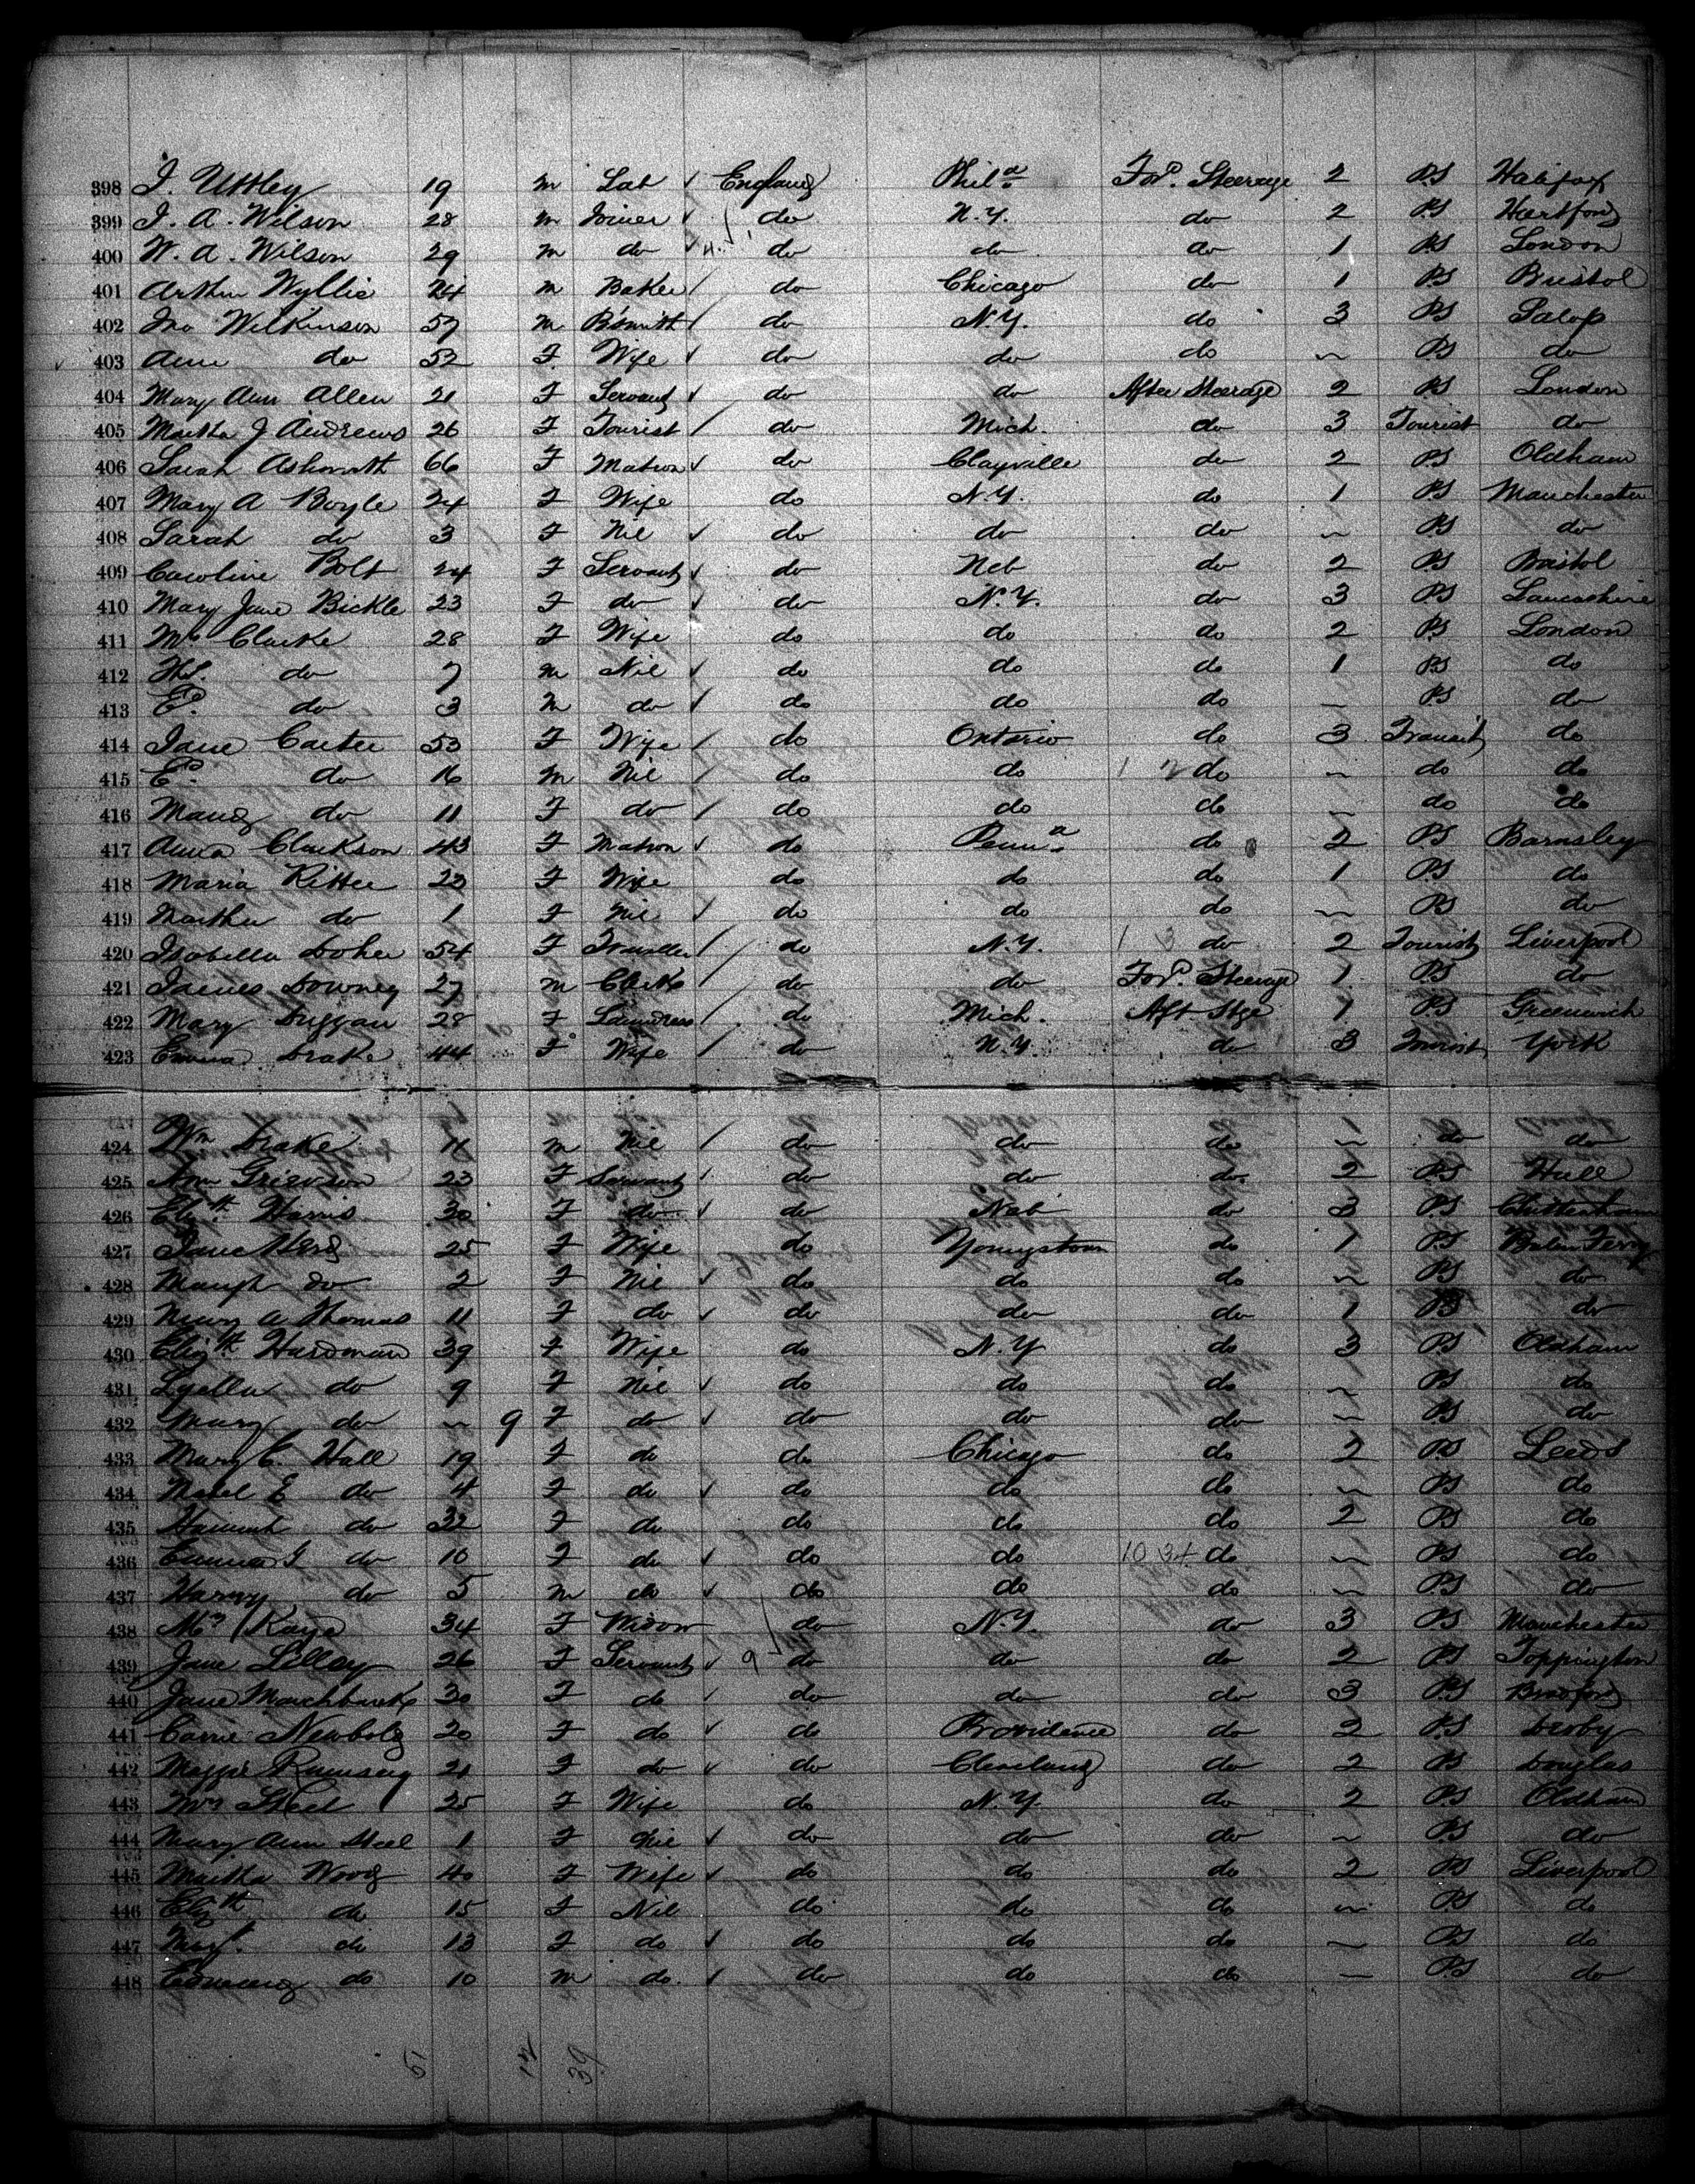 398 J. Uttley 19 m Lab ✓ England Phil.a For.d Steerage 2 P.S Halifax
399 J. A. Wilson 28 m Joiner ✓ do N.Y. do 2 P.S Hertford
400 W. A. Wilson 29 m do ✓ do do do 1 P.S London
401 Arthur Wyllie 24 m Baker / do Chicago do 1 P.S Bristol
402 Jno Wilkinson 57 m B'smith / do N.Y. do 3 P.S Salop
403 Ann do 52 F. Wife ✓ do do do ~ P.S do
404 Mary Ann Allen 21 F Servant ✓ do do After Steerage 2 P.S London
405 Martha J Andrews 26 F Tourist / do Mich. do 3 Tourist do
406 Sarah Ashworth 66 F Matron ✓ do Clayville do 2 P.S Oldham
407 Mary A Boyle 24 F Wife do N.Y. do 1 P.S Manchester
408 Sarah do 3 F Nil ✓ do do do ~ P.S do
409 Caroline Bolt 24 F Servant ✓ do Neb do 2 P.S Bristol
410 Mary Jane Bickle 23 F do ✓ do N.Y. do 3 P.S Lancashire
411 Mrs Clarke 28 F Wife do do do 2 P.S London
412 do 7 m Nil ✓ do do do 1 P.S do
413 Ed. do 3 m do ✓ do do do ~ P.S do
414 Jane Carter 53 F Wife / do Ontario do 3 Transit do
415 Ed. do 16 m Nil / do do do ~ do do
416 Maud do 11 F do / do do do ~ do do
417 Anna Clarkson 43 F Matron ✓ do Penn.a do 2 P.S Barnsley
418 Maria Ritter 23 F Wife do do do 1 P.S do
419 Martha do 1 F Nil ✓ do do do ~ P.S do
420 Isabella 54 F Traveller / do N.Y. 1 3 do 2 Tourist Liverpool
421 James Downey 27 m Clerk / do do For.d Steerage 1 P.S do
422 Mary Duggan 28 F Laundress / do Mich. Aft Stge 1 P.S Greenwich
423 Emma Drake 44 F Wife / do N.Y. do 3 Tourist York
424 Wm Drake 11 m Nil / do do do ~ do do
425 Ann Grierson 23 F Servant / do do do 2 P.S Hull
426 Eliz.th Harris 30 F do ✓ do Neb do 3 P.S
427 Jane 25 F Wife do Youngstown do 1 P.S Ferry
428 do 2 F Nil ✓ do do do ~ P.S do
429 Mary A Thomas 11 F do ✓ do do do 1 P.S do
430 Eliz.th Hardman 39 F Wife do N.Y do 3 P.S Oldham
431 do 9 F Nil ✓ do do do ~ P.S do
432 Mary do ~ 9 F do ✓ do do do ~ P.S do
433 Mary E. Hall 19 F do do Chicago do 2 P.S Leeds
434 Mabel E do 4 F do ✓ do do do ~ P.S do
435 Hannah do 32 F do do do do 2 P.S do
436 Emma G do 10 F do ✓ do do 10 34 do ~ P.S do
437 Harry do 5 m do ✓ do do do ~ P.S do
438 Mrs Kaye 34 F Widow do N.Y. do 3 P.S Manchester
439 Jane Lilley 26 F Servant ✓ 9 do do do 2 P.S Toppington
440 Jane Marchbanks 30 F do / do do do 3 P.S Bradford
441 Carrie Newbold 20 F do ✓ do Providence do 2 P.S Derby
442 Maggie Ramsey 21 F do ✓ do Cleveland do 2 P.S Douglas
443 Mrs Steel 25 F Wife do N.Y. do 2 P.S Oldham
444 Mary Ann Steel 1 F Nil ✓ do do do ~ P.S do
445 Martha Wood 40 F Wife ✓ do do do 2 P.S Liverpool
446 Eliz.th do 15 F Nil do do do ~ P.S do
447 Marg.t do 13 F do ✓ do do do ~ P.S do
448 Edmund do 10 m do ✓ do do do ~ P.S do
51 12 39